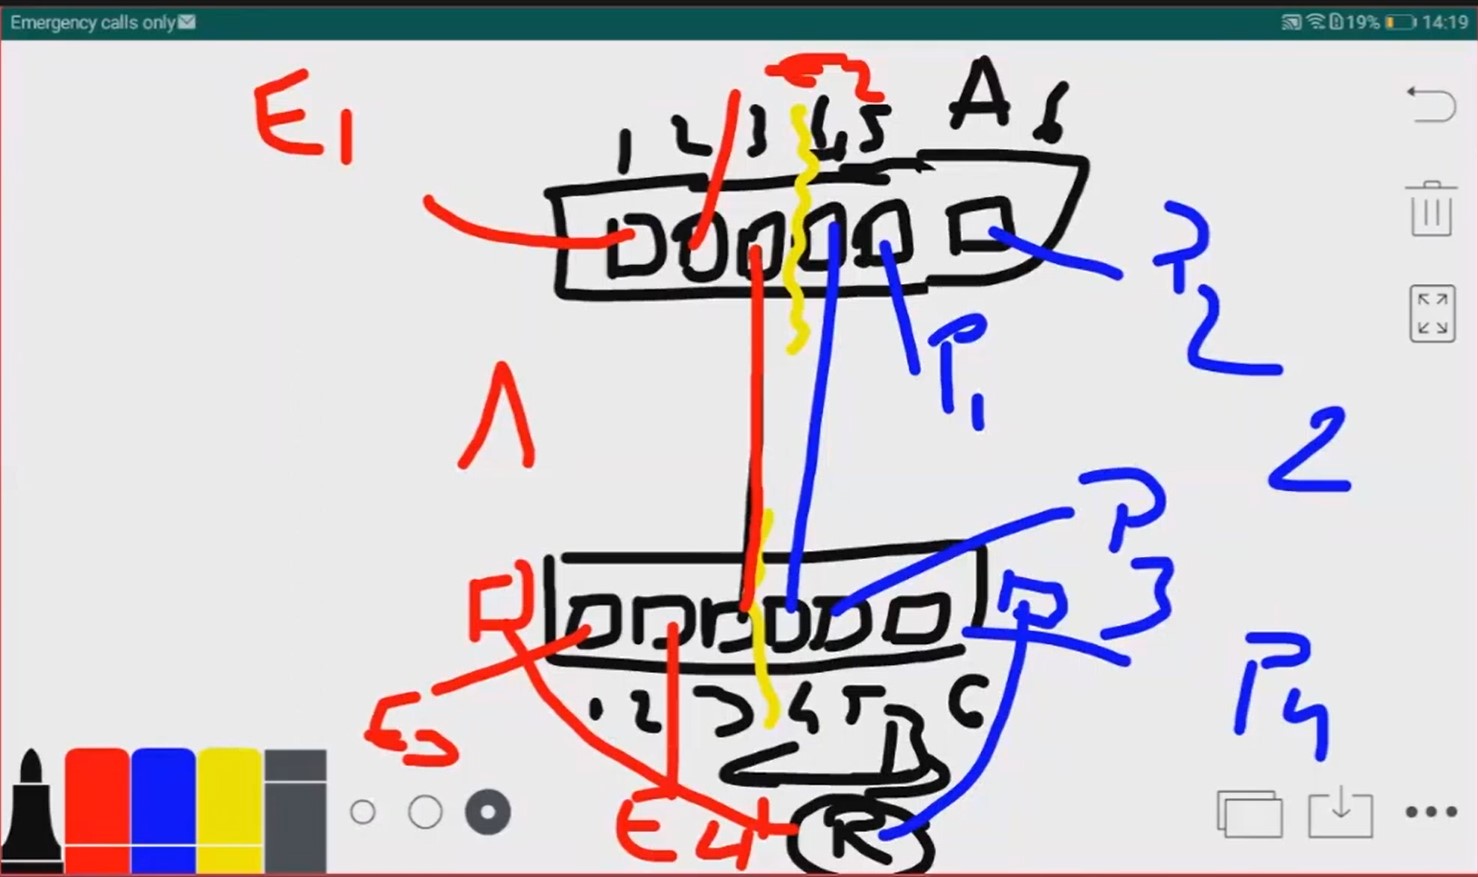 Emergency calls only 19% 14:19
E1
1 2 3 4 5 A 6
P2
P1
2
P3
P4
1 2 3 4 5 6
B
E3
E4
R